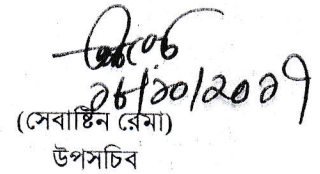 ১৮/১০/২০১৭
(সেবাষ্টিন রেমা)
উপসচিব